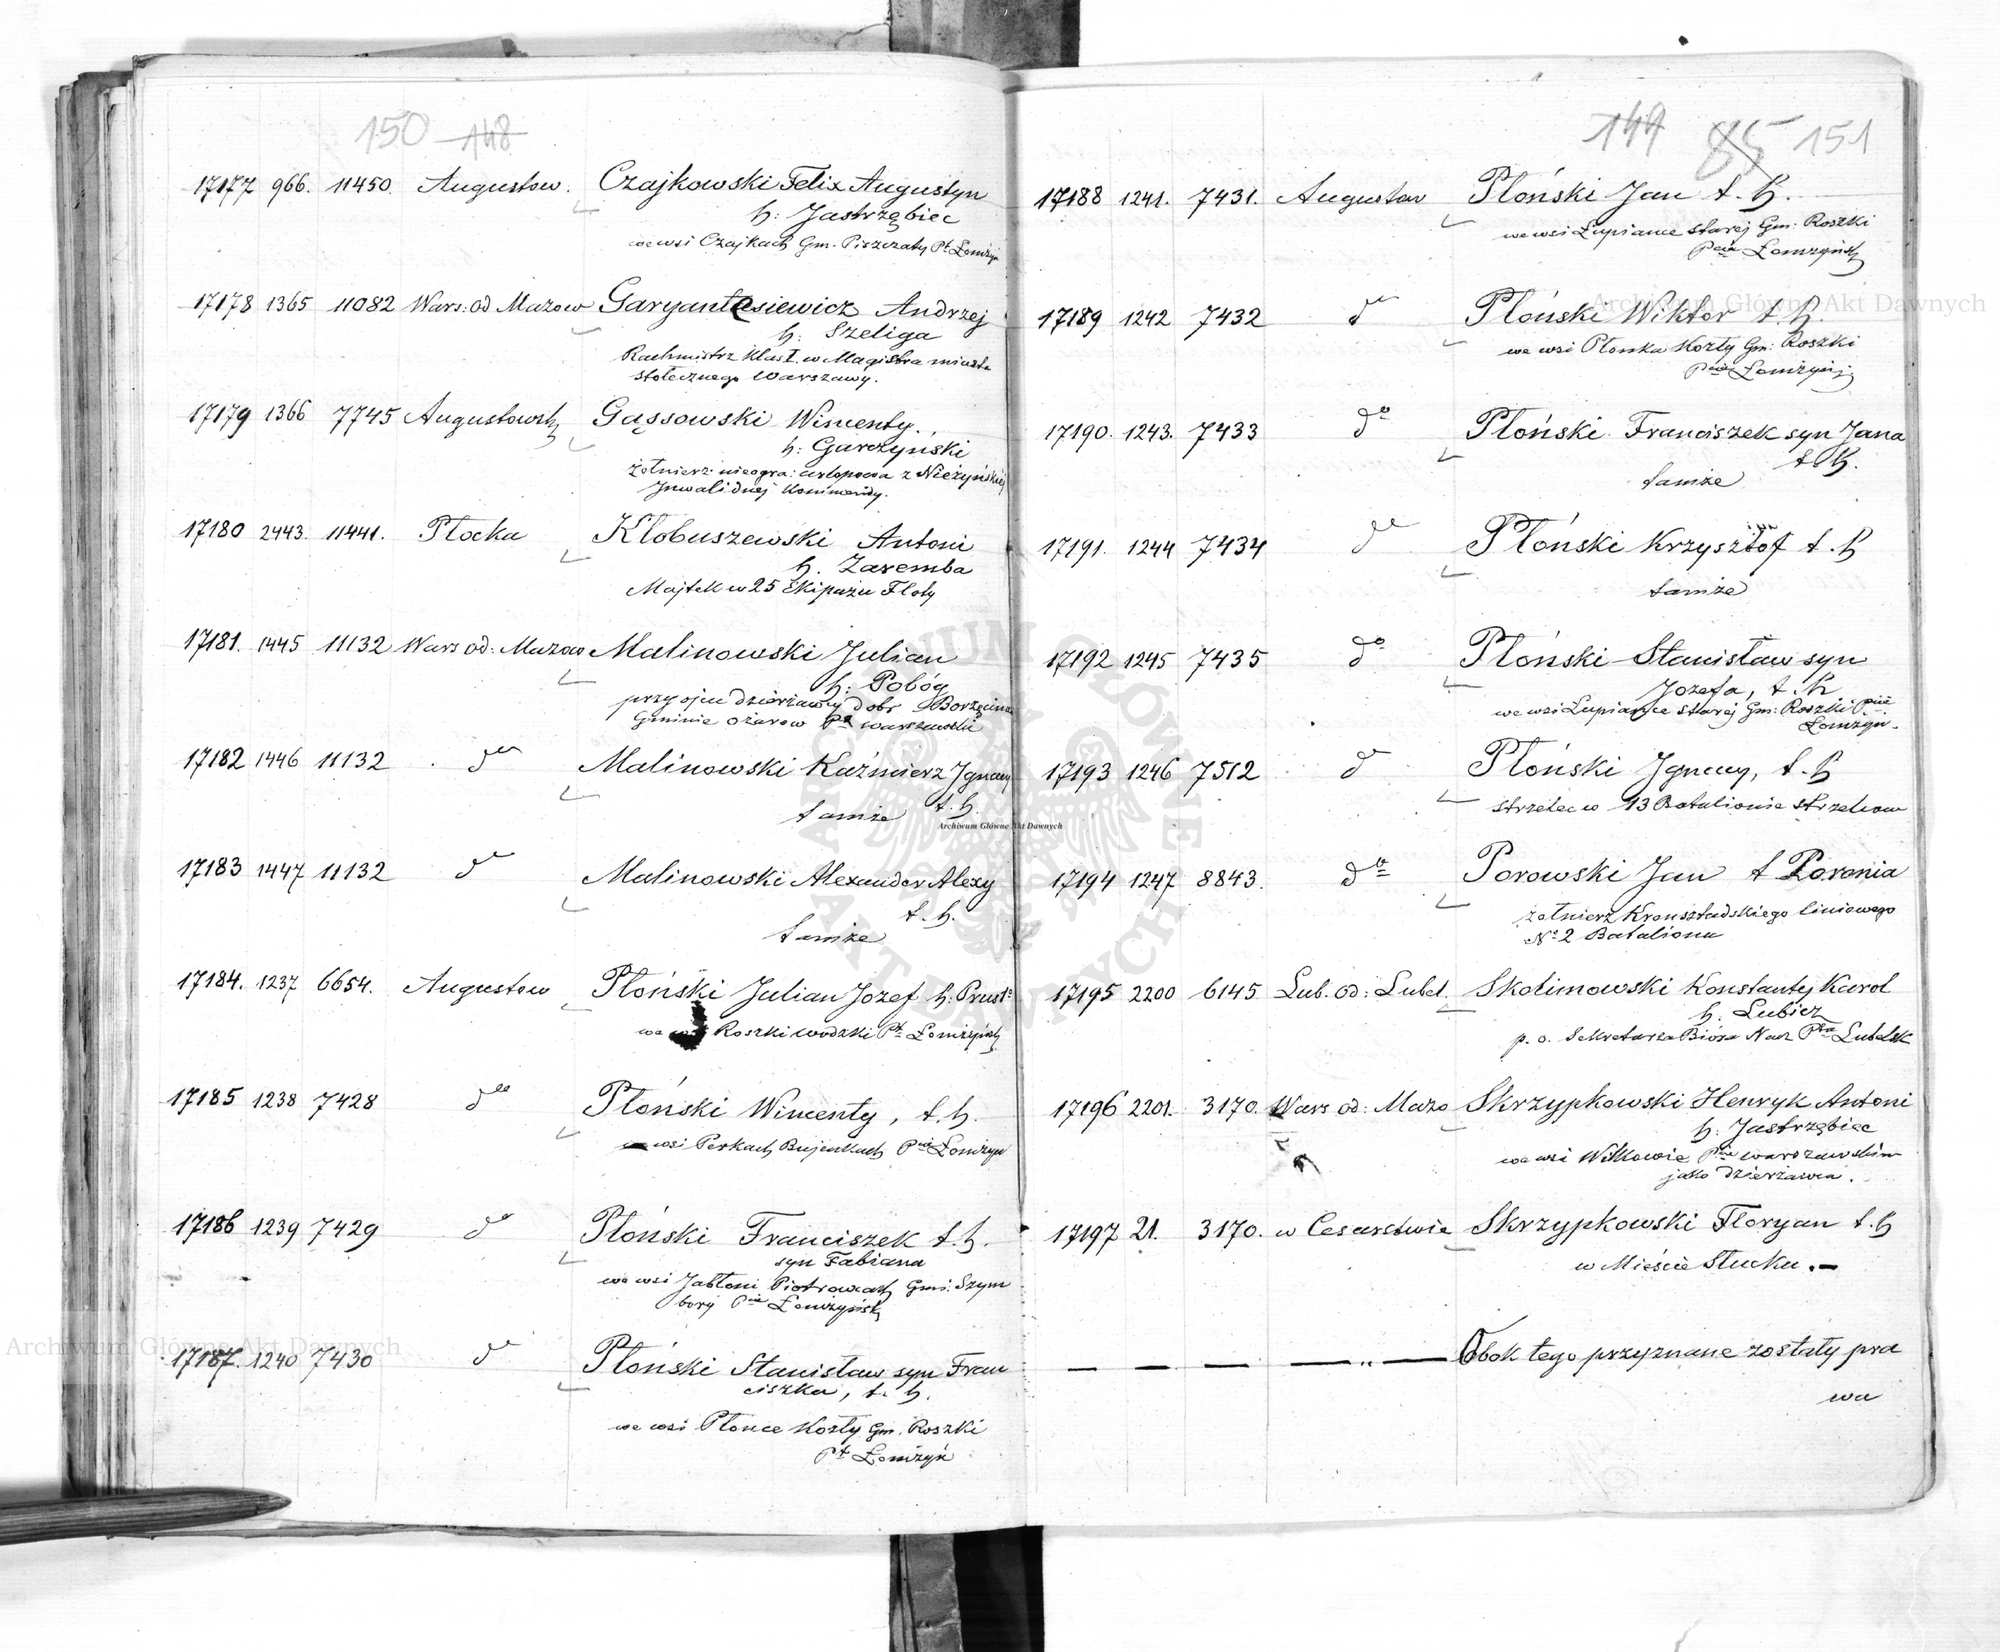 150 148
17177 966. 11450. Augustow. Czajkowski Felix Augustyn
h: Jastrzębiec
we wsi Czajkach Gm. Piszczaty Pt Łomżyń
17178 1365 11082 Wars: od Mazow Garyantesiewicz Andrzej
h: Szeliga
Rachmistrz klas I. w Magistra miasta
stołecznego Warszawy.
17179 1366 7745 Augustowsk Gąssowski Wincenty.
h: Garczyński
żołnierz nieogra: urlopowa z Nieżyńskiej
Inwalidnej Kommendy.
17180 2443. 11441. Płocka Kłobuszewski Antoni
h. Zaremba
Majtek w 25 Ekipażu Floty
17181. 1445 11132 Wars od: Mazow Malinowski Julian
h: Pobóg
przy ojcu dzierżawcy dobr Borzęcina
Gminie Ożarow Pt Warszawski
17182 1446 11132 do Malinowski Kaźmierz Ignacy
t. h.
tamże
17183 1447 11132 do Malinowski Alexander Alexy
t. h.
tamże
17184. 1237 6654. Augustow Płoński Julian Jozef h: Prust:
we wsi Roszki wodzki Pt Łomżyńsk
17185 1238 7428 do Płoński Wincenty, t. h.
we wsi Perkach Bujenkach Pcie Łomżyń
17186 1239 7429 do Płoński Franciszek t. h.
syn Fabiana
we wsi Jabłoni Piotrowcach Gmi: Szym
bory Pcie Łomżyńsk
17187. 1240 7430 do Płoński Stanisław syn Fran
ciszka, t. h.
we wsi Płonce Kozły Gm. Roszki
Pt Łomżyń
149 85 151
17188 1241. 7431. Augustow Płoński Jan t. h.
we wsi Łupiance starej Gm: Roszki
Pcie Łomżyńsk
17189 1242 7432 do Płoński Wiktor t. h.
we wsi Płonka Kozły Gm: Roszki
Pcie Łomżyńs
17190. 1243. 7433 do Płoński Franciszek syn Jana
t. h.
tamże
17191. 1244 7434 do Płoński Krzysztof t. h
tamże
17192 1245 7435 do Płoński Stanisław syn
Jozefa, t. h
we wsi Łupiance starej Gm: Roszki Pcie
Łomżyń.
17193 1246 7512 do Płoński Ignacy, t. h
strzelec w 13 Batalionie strzelcow
17194 1247 8843. do Porowski Jan t Poronia
żołnierz Kronsztadskiego liniowego
No 2 Bataliona
17195 2200 6145 Lub. od: Lubel. Skolimowski Konstanty Karol
h. Lubicz
p. o. Sekretarza Bióra Nacz Ptu Lubelsk
17196 2201. 3170. Wars od: Mazo Skrzypkowski Henryk Antoni
h: Jastrzębiec
we wsi Witkowie Pcie warszawskim
jako dzierżawca.
17197 21. 3170. w Cesarstwie Skrzypkowski Floryan t. h
w Mieście Słucku.—
— — — — " — Obok tego przyznane zostały pra
wa
Archiwum Główne Akt Dawnych
Archiwum Główne Akt Dawnych
Archiwum Główne Akt Dawnych
ARCHIWUM GŁÓWNE AKT DAWNYCH